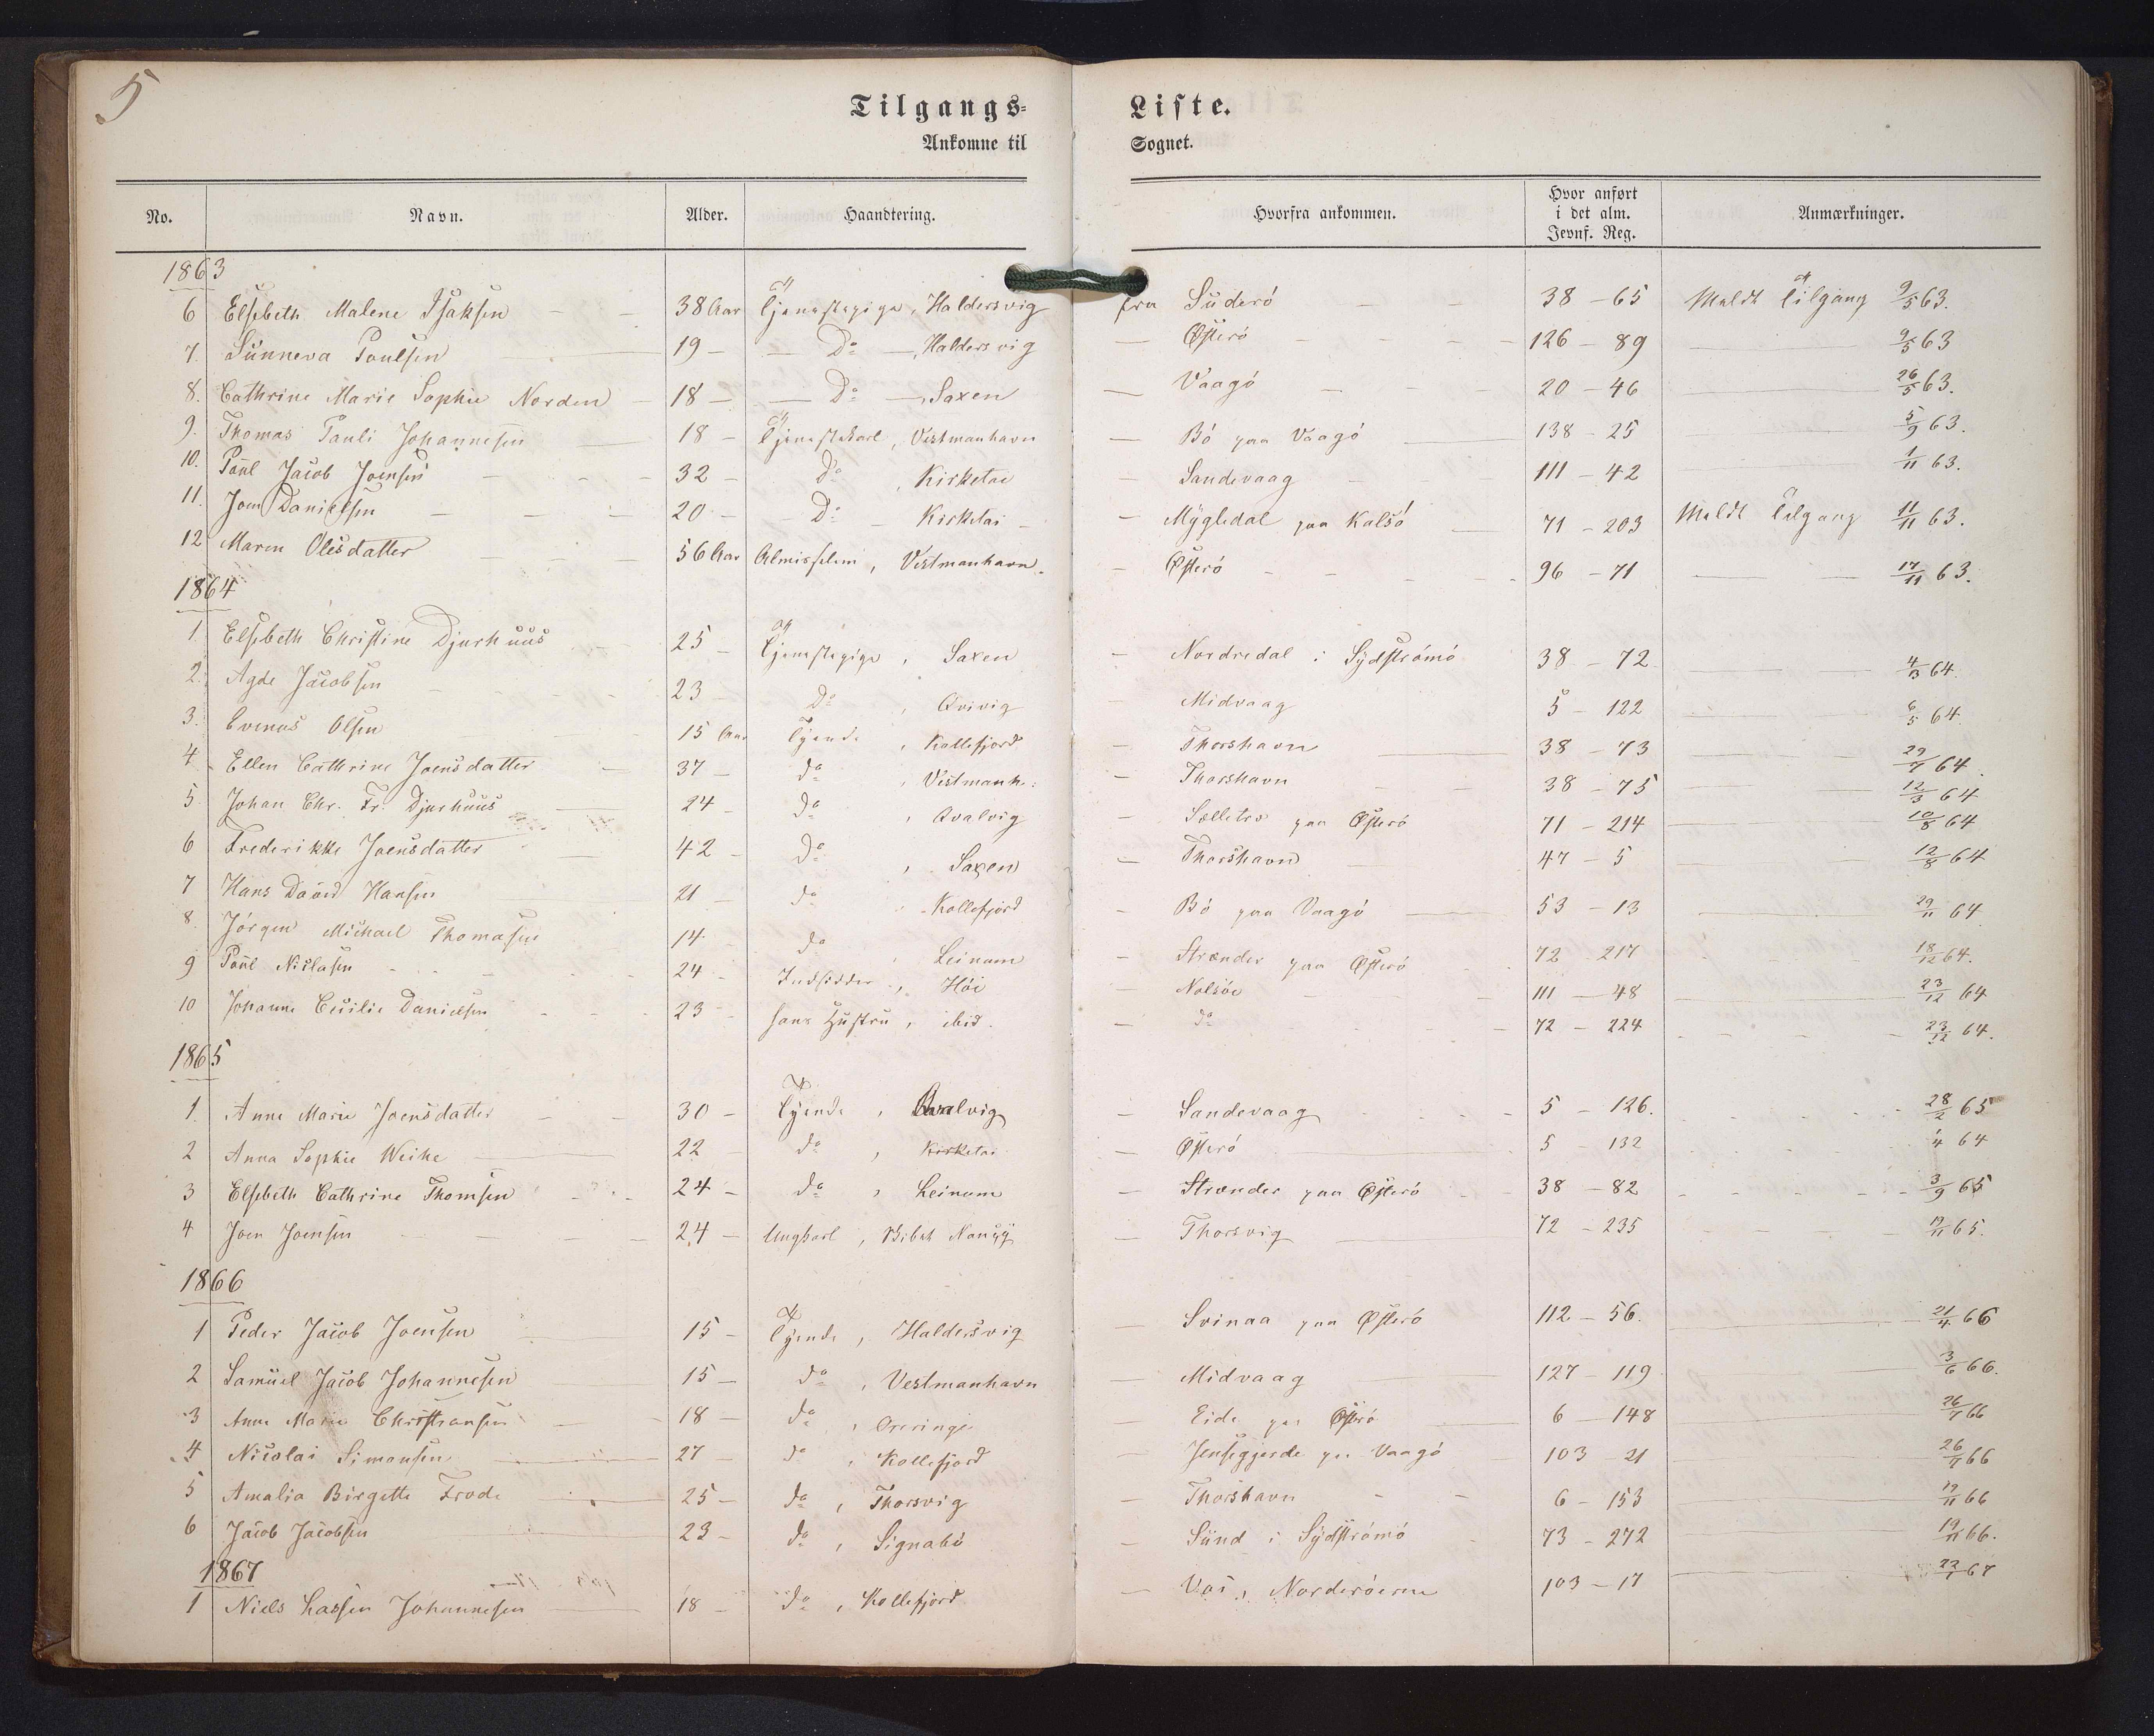 5
Tilgangs= Liste.
Ankomne til Sognet.
No. Navn. Alder. Haandtering. Hvorfra ankommen. Hvor anført i det alm. Jevnf. Reg. Anmærkninger.
1863
6 Elsebeth Malene Isaksen 38 Aar Tjenestepige, Haldersvig fra Suderö 38 - 65 Meldt Tilgang 9/5 63.
7. Sunneva Poulsen 19 - Do - Haldersvig - Østerö 126 - 89 9/5 63
8. Cathrine Marie Sophie Norden 18 - Do -, Saxen - Vaagö 20 - 46 26/5 63.
9. Thomas Pauli Johannesen 18 - Tjenestekarl, Vestmanhavn - Bö paa Vaagö 138 - 25 5/9 63.
10. Poul Jacob Joensen 32 - Do, Kirketai - Sandevaag 111 - 42 1/11 63.
11. Joen Danielsen 20 - Do - Kirketai - Mygledal paa Kalsö 71 - 203 Meldt Tilgang 11/11 63.
12 Maren Olesdatter 56 Aar Almisselem, Vestmanhavn. - Østerö 96 - 71 17/11 63.
1864
1. Elsebeth Christine Djurhuus 25 - Tjenestepige, Saxen - Nordredal i Sydströmö 38 - 72 4/3 64.
2. Agde Jacobsen 23 Do, Qvivig - Midvaag 5 - 122 6/5 64.
3. Evenus Olsen 15 Aar Tyende, Kollefjord - Thorshavn 38 - 73 29/7 64.
4 Ellen Cathrine Joensdatter 37 - do, Vestmanh: - Thorshavn 38 - 75 12/3 64
5. Johan Chr. Fr. Djurhuus 24 - do, Qvalvig - Selletræ paa Østerö 71 - 214 10/8 64
6 Frederikke Joensdatter 42 - Do, Saxen - Thorshavn 47 - 5 12/8 64
7 Hans David Hansen 21 - do Kollefjord - Bö paa Vaagö 53 - 13 29/11 64
8. Jörgen Michael Thomasen 14 - do, Leinum - Strænder paa Østerö 72 217 18/12 64.
9 Poul Niclasen 24 - Indsidder, Höi - Nolsöe 111 - 48 23/12 64
10 Johanne Cecilie Danielsen 23 - hans Hustru, ibid. - do 72 - 224 23/12 64.
1865
1. Anne Marie Joensdatter 30 - Tyende, Qvalvig - Sandevaag 5 - 126. 28/2 65
2 Anna Sophie Weihe 22 do, Kirketai - Østerö 5 - 132 1/4 64
3 Elsebeth Cathrine Thomsen 24 - do, Leinum - Strænder paa Østerö 38 - 82 3/9 65
4 Joen Joensen 24 - Ungkarl, - Thorsvig 72 - 235 65.
1866
1 Peder Jacob Joensen 15 - Tyende, Haldersvig - Svinaa paa Østerö 112 - 56. 21/4 66
2 Samuel Jacob Johannesen 15 - do, Vestmanhavn - Midvaag 127 - 119 3/6 66.
3 Anne Marie Christiansen 18 - do, Oreringe - Eide paa Østerö 6 - 148 26/7 66
4 Nicolai Simonsen 27 - do, Kollefjord - paa Vaagö 103 - 21 26/7 66
5 Amalia Birgette Trode 25 - do, Thorsvig - Thorshavn 6 - 153 66
6 Jacob Jacobsen 23 - do, Signabö - Sund i Sydströmö 73 - 272 19/11 66.
1867
1 Niels Lassen Johannesen 18 - do, Kollefjord - Norderöerne 103 - 17 67